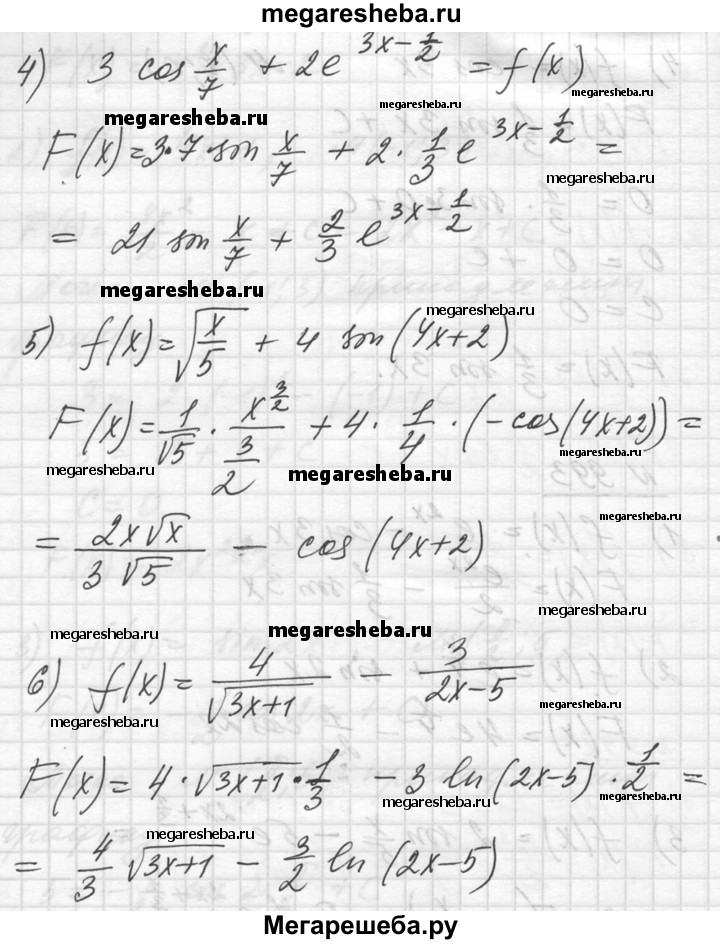 megaresheba.ru
4) 3 cos x/7 + 2e^(3x - 1/2) = f(x)
megaresheba.ru megaresheba.ru megaresheba.ru
F(x) = 3·7·sin x/7 + 2·1/3 e^(3x - 1/2) =
megaresheba.ru
= 21 sin x/7 + 2/3 e^(3x - 1/2)
megaresheba.ru megaresheba.ru
5) f(x) = √(x/5) + 4 sin(4x+2)
F(x) = 1/√5 · x^(3/2)/(3/2) + 4 · 1/4 · (-cos(4x+2)) =
megaresheba.ru megaresheba.ru
megaresheba.ru
= 2x√x/(3√5) - cos(4x+2)
megaresheba.ru
megaresheba.ru megaresheba.ru
6) f(x) = 4/√(3x+1) - 3/(2x-5)
megaresheba.ru megaresheba.ru
F(x) = 4·√(3x+1)·1/3 - 3 ln(2x-5)·1/2 =
megaresheba.ru megaresheba.ru
megaresheba.ru
= 4/3 √(3x+1) - 3/2 ln(2x-5)
megaresheba.ru
Мегарешеба.ру